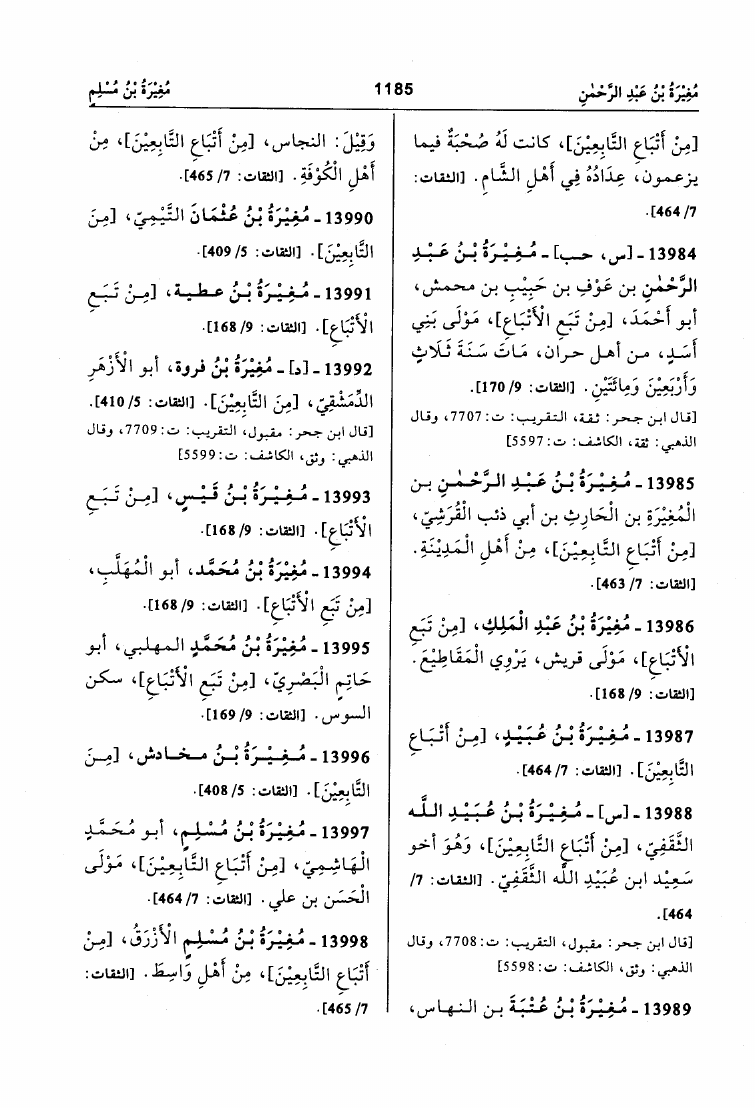 مُغِيْرَةُ بْنُ عَبْدِ الرَّحْمٰنِ
1185
مُغِيْرَةُ بْنُ مُسْلِمٍ
[مِنْ أَتْبَاعِ التَّابِعِيْنَ]، كانت لَهُ صُحْبَةٌ فيما
يزعمون، عِدَادُهُ فِي أَهْلِ الشَّامِ. [الثقات:
7/ 464].
13984 - [س، حب] - مُغِيْرَةُ بْنُ عَبْدِ
الرَّحْمٰنِ بن عَوْفِ بن حَبِيْبِ بن محمش،
أبو أَحْمَدَ، [مِنْ تَبَعِ الْأَتْبَاعِ]، مَوْلَى بَنِي
أَسَدٍ، من أهل حران، مَاتَ سَنَةَ ثَلَاثٍ
وَأَرْبَعِيْنَ وَمِائَتَيْنِ. [الثقات: 9/ 170].
[قال ابن حجر: ثقة، التقريب: ت:7707، وقال
الذهبي: ثقة، الكاشف: ت:5597]
13985 - مُغِيْرَةُ بْنُ عَبْدِ الرَّحْمٰنِ بن
الْمُغِيْرَةِ بن الْحَارِثِ بن أبي ذئب الْقُرَشِيُّ،
[مِنْ أَتْبَاعِ التَّابِعِيْنَ]، مِنْ أَهْلِ الْمَدِيْنَةِ.
[الثقات: 7/ 463].
13986 - مُغِيْرَةُ بْنُ عَبْدِ الْمَلِكِ، [مِنْ تَبَعِ
الْأَتْبَاعِ]، مَوْلَى قريش، يَرْوِي الْمَقَاطِيْعَ.
[الثقات: 9/ 168].
13987 - مُغِيْرَةُ بْنُ عُبَيْدٍ، [مِنْ أَتْبَاعِ
التَّابِعِيْنَ]. [الثقات: 7/ 464].
13988 - [س] - مُغِيْرَةُ بْنُ عُبَيْدِ اللَّه
الثَّقَفِيُّ، [مِنْ أَتْبَاعِ التَّابِعِيْنَ]، وَهُوَ أخو
سَعِيْد ابن عُبَيْدِ اللَّه الثَّقَفِيُّ. [الثقات: 7/
464].
[قال ابن جحر: مقبول، التقريب: ت:7708، وقال
الذهبي: وثق، الكاشف: ت:5598]
13989 - مُغِيْرَةُ بْنُ عُتْبَةَ بن النهاس،
وَقِيْلَ: النجاس، [مِنْ أَتْبَاعِ التَّابِعِيْنَ]، مِنْ
أَهْلِ الْكُوْفَةِ. [الثقات: 7/ 465].
13990 - مُغِيْرَةُ بْنُ عُثْمَانَ التَّيْمِيُّ، [مِنَ
التَّابِعِيْنَ]. [الثقات: 5/ 409].
13991 - مُغِيْرَةُ بْنُ عطية، [مِنْ تَبَعِ
الْأَتْبَاعِ]. [الثقات: 9/ 168].
13992 - [د] - مُغِيْرَةُ بْنُ فروة، أبو الْأَزْهَرِ
الدِّمَشْقِيُّ، [مِنَ التَّابِعِيْنَ]. [الثقات: 5/ 410].
[قال ابن جحر: مقبول، التقريب: ت:7709، وقال
الذهبي: وثق، الكاشف: ت:5599]
13993 - مُغِيْرَةُ بْنُ قَيْسٍ، [مِنْ تَبَعِ
الْأَتْبَاعِ]. [الثقات: 9/ 168].
13994 - مُغِيْرَةُ بْنُ مُحَمَّد، أبو الْمُهَلَّبِ،
[مِنْ تَبَعِ الْأَتْبَاعِ]. [الثقات: 9/ 168].
13995 - مُغِيْرَةُ بْنُ مُحَمَّدٍ المهلبي، أبو
حَاتِمٍ الْبَصْرِيُّ، [مِنْ تَبَعِ الْأَتْبَاعِ]، سكن
السوس. [الثقات: 9/ 169].
13996 - مُغِيْرَةُ بْنُ مخادش، [مِنَ
التَّابِعِيْنَ]. [الثقات: 5/ 408].
13997 - مُغِيْرَةُ بْنُ مُسْلِمٍ، أبو مُحَمَّدٍ
الْهَاشِمِيُّ، [مِنْ أَتْبَاعِ التَّابِعِيْنَ]، مَوْلَى
الْحَسَن بن علي. [الثقات: 7/ 464].
13998 - مُغِيْرَةُ بْنُ مُسْلِمٍ الْأَزْرَقُ، [مِنْ
أَتْبَاعِ التَّابِعِيْنَ]، مِنْ أَهْلِ وَاسِطَ. [الثقات:
7/ 465].